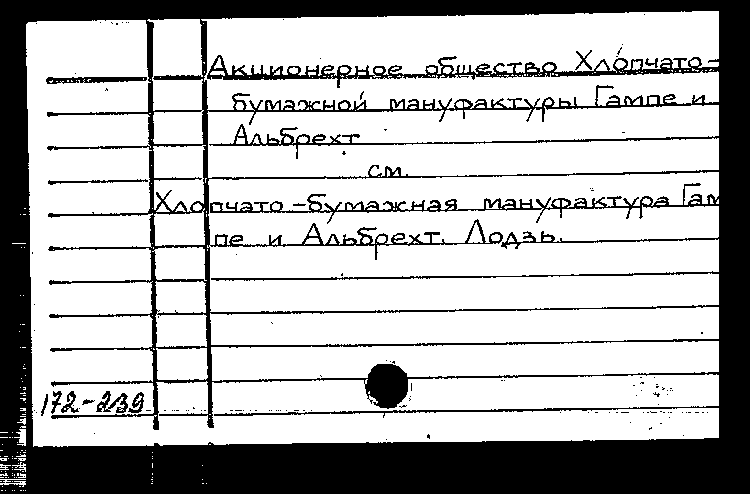 Акционерное общество Хлопчато-
бумажной мануфактуры Гампе и
Альбрехт
см.
Хлопчато-бумажная мануфактура Гам
пе и Альбрехт. Лодзь.
172-239